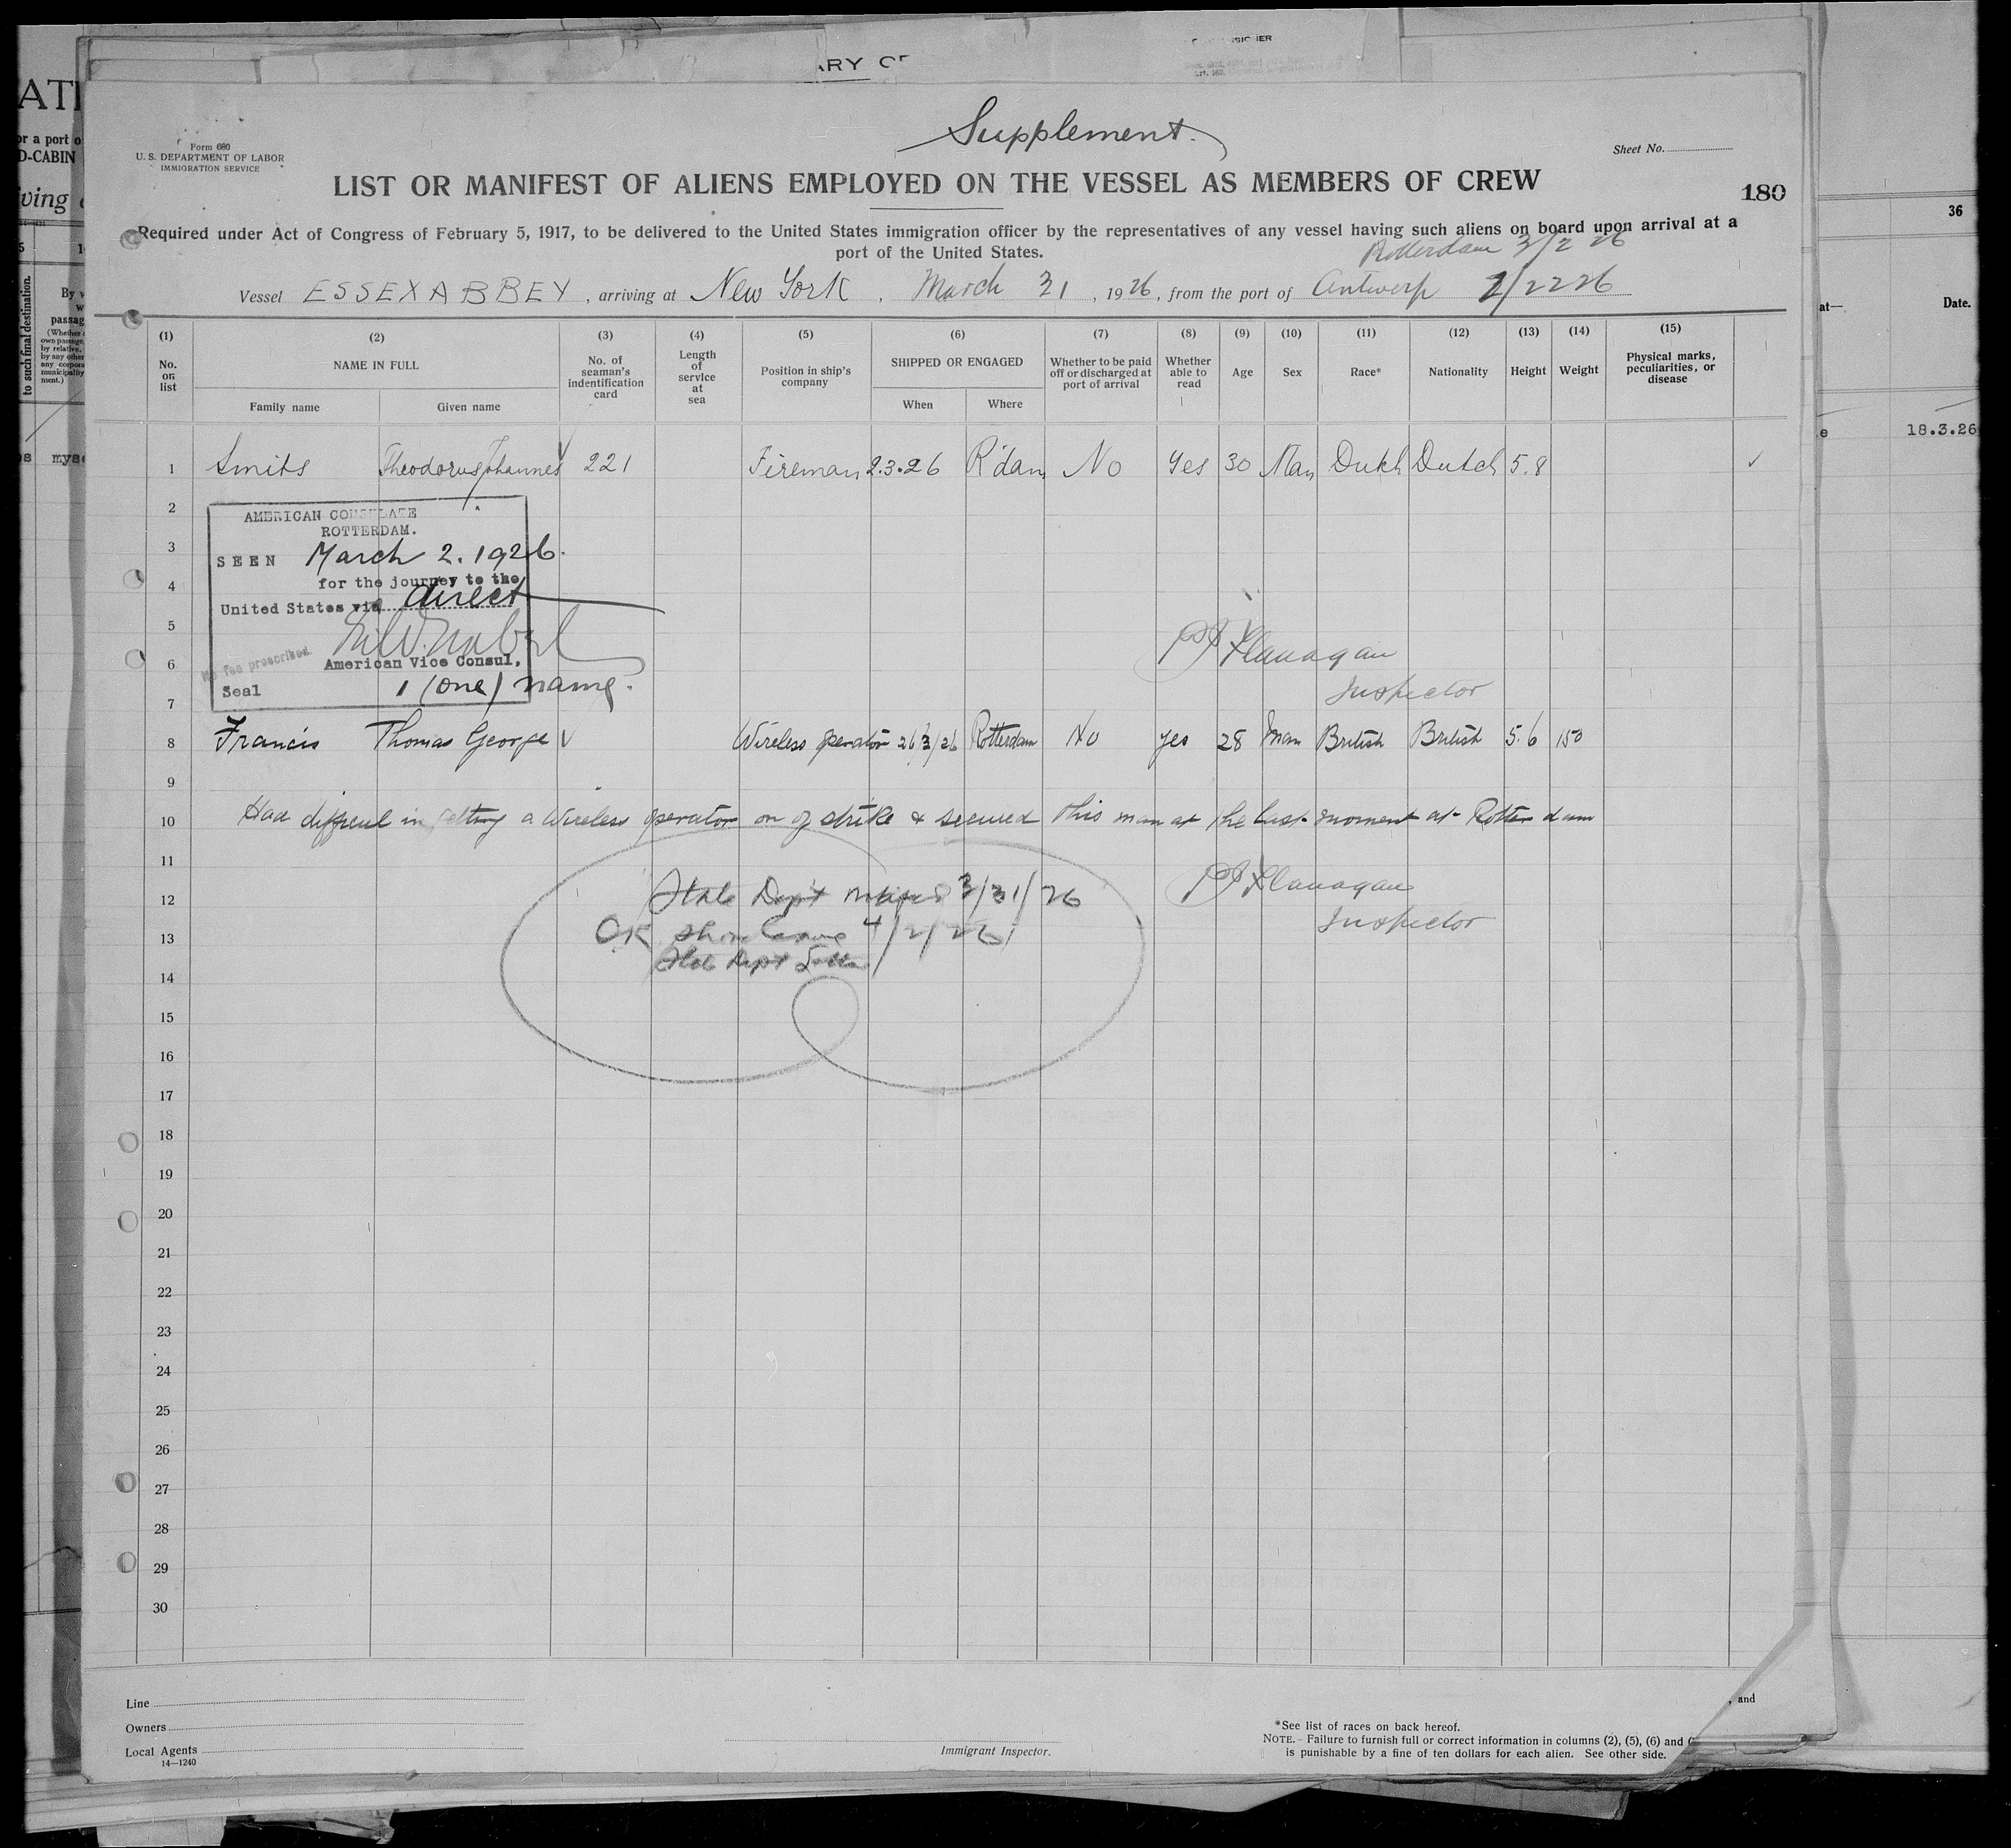 ARY OF
Supplement.
Form 680
U. S. DEPARTMENT OF LABOR
IMMIGRATION SERVICE
Sheet No.
LIST OR MANIFEST OF ALIENS EMPLOYED ON THE VESSEL AS MEMBERS OF CREW
180
Required under Act of Congress of February 5, 1917, to be delivered to the United States immigration officer by the representatives of any vessel having such aliens on board upon arrival at a
port of the United States.
Rotterdam 3/2 26
Vessel ESSEX ABBEY, arriving at New York, March 31, 1926, from the port of Antwerp 2/22 26
(1) (2) (3) (4) (5) (6) (7) (8) (9) (10) (11) (12) (13) (14) (15)
No. on list
NAME IN FULL
Family name
Given name
No. of seaman's indentification card
Length of service at sea
Position in ship's company
SHIPPED OR ENGAGED
When
Where
Whether to be paid off or discharged at port of arrival
Whether able to read
Age
Sex
Race*
Nationality
Height
Weight
Physical marks, peculiarities, or disease
1 Smits Theodorus Johannes √ 221 Fireman 2.3.26 R'dam No Yes 30 Man Dutch Dutch 5.8 ✓
2
AMERICAN CONSULATE
ROTTERDAM.
3
SEEN March 2. 1926.
for the journey to the
4
United States via direct
5
6
No fee prescribed.
American Vice Consul,
Seal 1 (one) name.
7
PJ Flanagan
Inspector
8 Francis Thomas George √ Wireless operator 26/3/26 Rotterdam No yes 28 Man British British 5.6 150
9
10 Had diffficul in getting a Wireless operator on of strike & secured this man at the last moment at Rotterdam
11
12 State Dept 3/31/26
PJ Flanagan
Inspector
13 OK 4/2/26
State Dept
14
15
16
17
18
19
20
21
22
23
24
25
26
27
28
29
30
Line
Owners
Local Agents
14—1240
Immigrant Inspector.
*See list of races on back hereof.
NOTE.- Failure to furnish full or correct information in columns (2), (5), (6) and
is punishable by a fine of ten dollars for each alien. See other side.
, and
36
Date.
at—
18.3.26